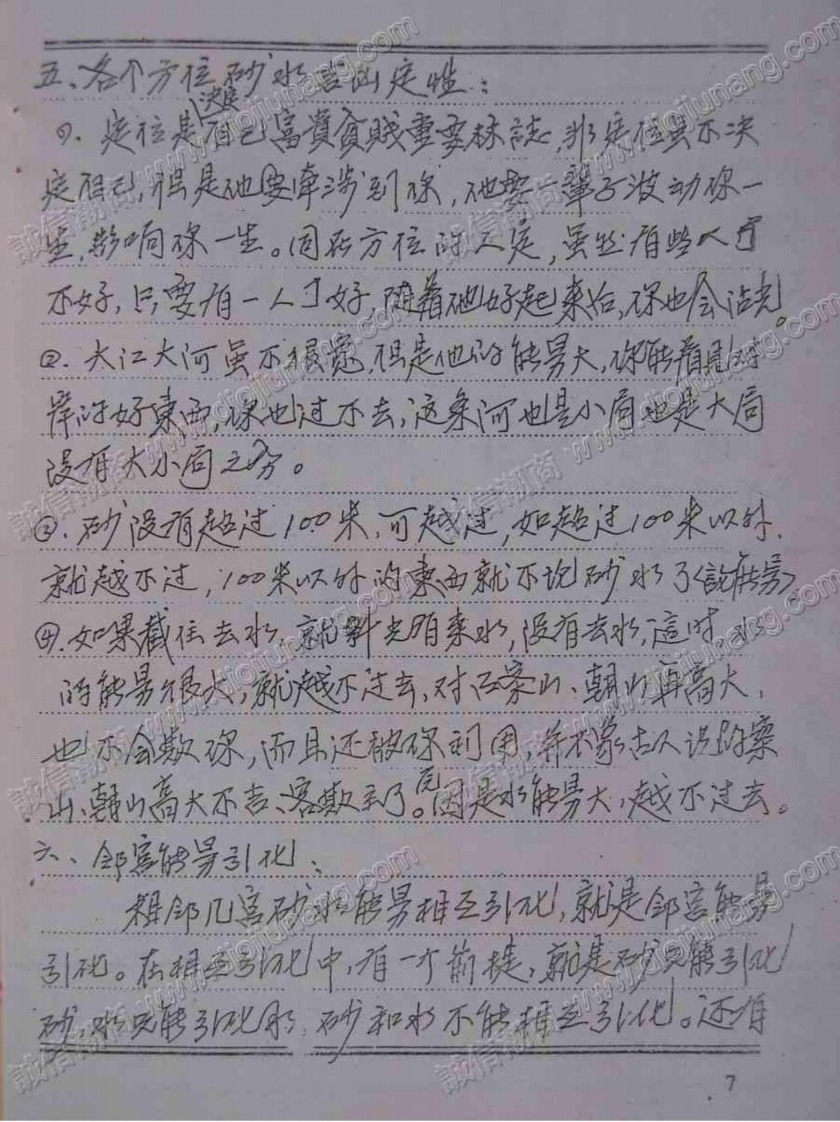 五、各个方位砂水吉凶定性：
决定
①. 定位是自己富貴貧賤重要标誌，非定位虽不决
定自己，但是他要牵涉到你，他要一輩子波动你一
生，影响你一生。因在方位的人定，虽然有些人丁
不好，只要有一人丁好，随着他好起来后，你也会沾光。
②. 大江大河虽不很宽，但是他的能量大，你能看見对
岸的好東西，你也过不去，这条河也是小局也是大局
没有大小局之分。
③. 砂没有超过100米，可越过，如超过100米以外，
就越不过，100米以外的東西就不论砂水了〈說能量〉
④. 如果截住去水，就算光有来水，没有去水，這时，水
的能量很大，就越不过去，对面案山、朝山再高大，
也不会欺你，而且还被你利用，并不象古人说的案
山、朝山高大不吉、客欺主了。因是水能量大，越不过去。
六、邻宫能量引化：
相邻几宫砂水能量相互引化，就是邻宫能量
引化。在相互引化中，有一个前提，就是砂只能引化
砂 水只能引化水 砂和水不能相互引化。还有
7
誠信潮商 www.diqiunang.com